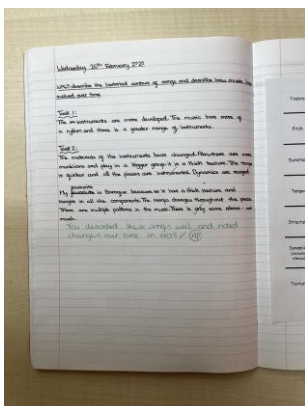 Wednesday 26th February 2025
WALT: describe the historical context of songs and describe how music has
evolved over time
Task 1:
The instruments are more developed. The music has more of
a rythm and there is a greater range of instruments.
Task 2:
The materials of the instruments have changed. Also there are more
musicians and play in a bigger group in a thick texture. The tempo
is quicker and all the pieces are instrumental. Dynamics are ranged.
My favourite is Baroque because it has a thick texture and
ranges in all the components. The tempo changes throughout the piece.
There are multiple pitches in the music. There is only some silence - not
much.
You described these songs well and noted
changes over time, in
Timbre
Pitch
Duration
Tempo
Structure
Dynamics
Texture